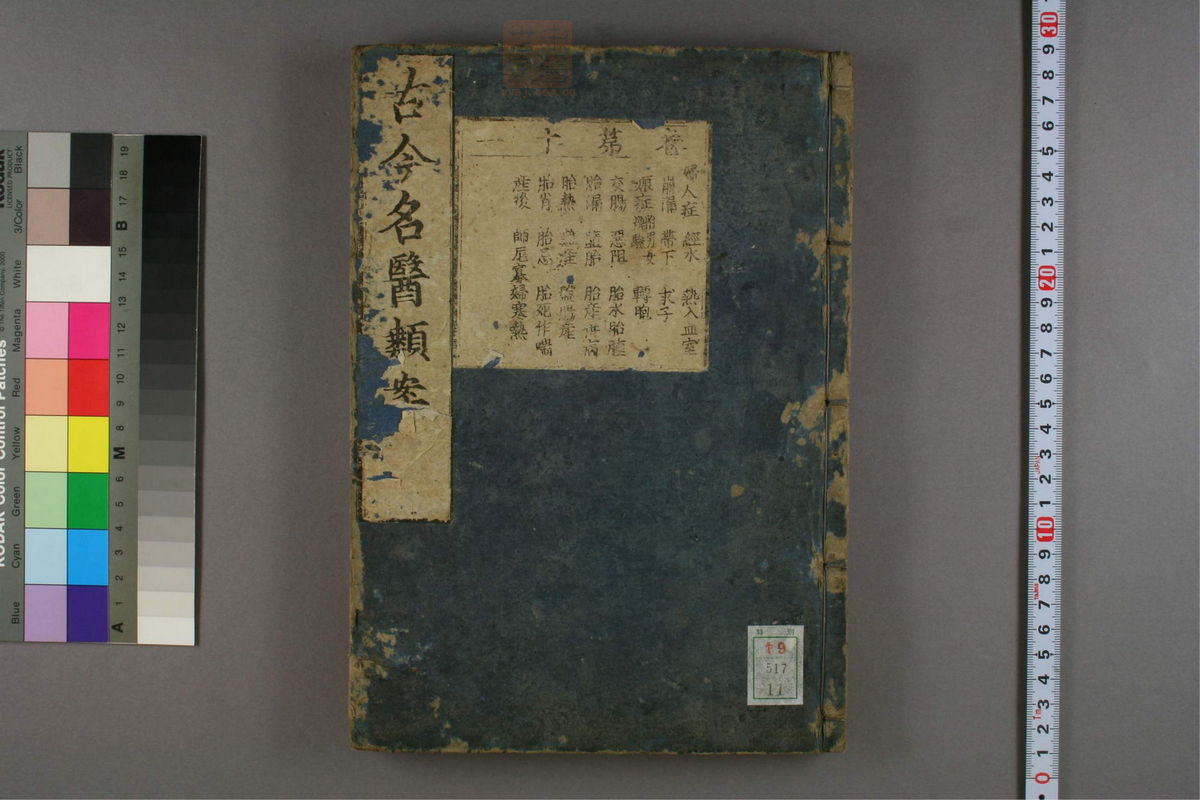 古今名醫類案
卷第十一
婦人症 經水 熱入血室
崩漏 帶下 求子
娠症 辨男女 轉胞
交腸 惡阻 胎水胎腫
胎漏 墮胎 胎産併病
胎熱
胎肖 胎忌 胎死作喘
産後 師尼寡婦寒熱
特 別
ヤ9
517
11
Kodak
LICENSED PRODUCT
KODAK Color Control Patches
© The Tiffen Company, 2000
Blue Cyan Green Yellow Red Magenta White 3/Color Black
A 1 2 3 4 5 6 M 8 9 10 11 12 13 14 15 B 17 18 19
0 1 2 3 4 5 6 7 8 9 10 1 2 3 4 5 6 7 8 9 20 1 2 3 4 5 6 7 8 9 30
JAPAN